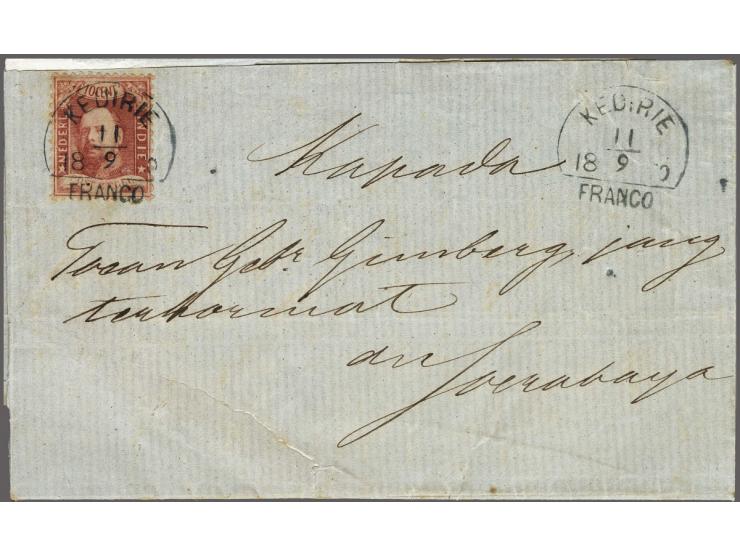 NEDERL INDIE
KEDIRIE
11
18 9
FRANCO
KEDIRIE
11
18 9
FRANCO
Kapada
Toean Gebr Gimberg, jang
terhormat
di
Soerabaya